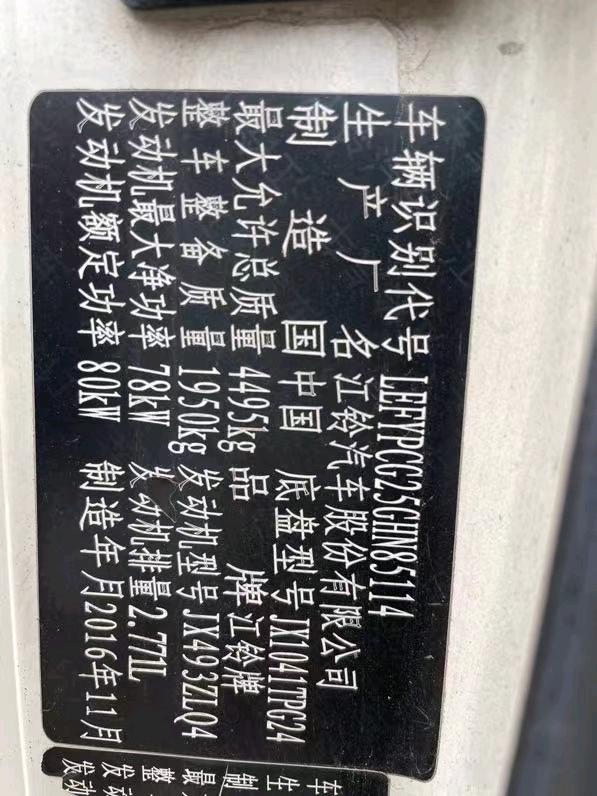 车辆识别代号 LEFYPCG25GHN85114
生产厂名 江铃汽车股份有限公司
制造国 中国 底盘型号 JX1041TPG24
最大允许总质量 4495kg 品牌 江铃牌
整车整备质量 1950kg 发动机型号 JX493ZLQ4
发动机最大净功率 78kW 发动机排量 2.771L
发动机额定功率 80kW 制造年月 2016年11月
车
生
制
最
整
发动
发动